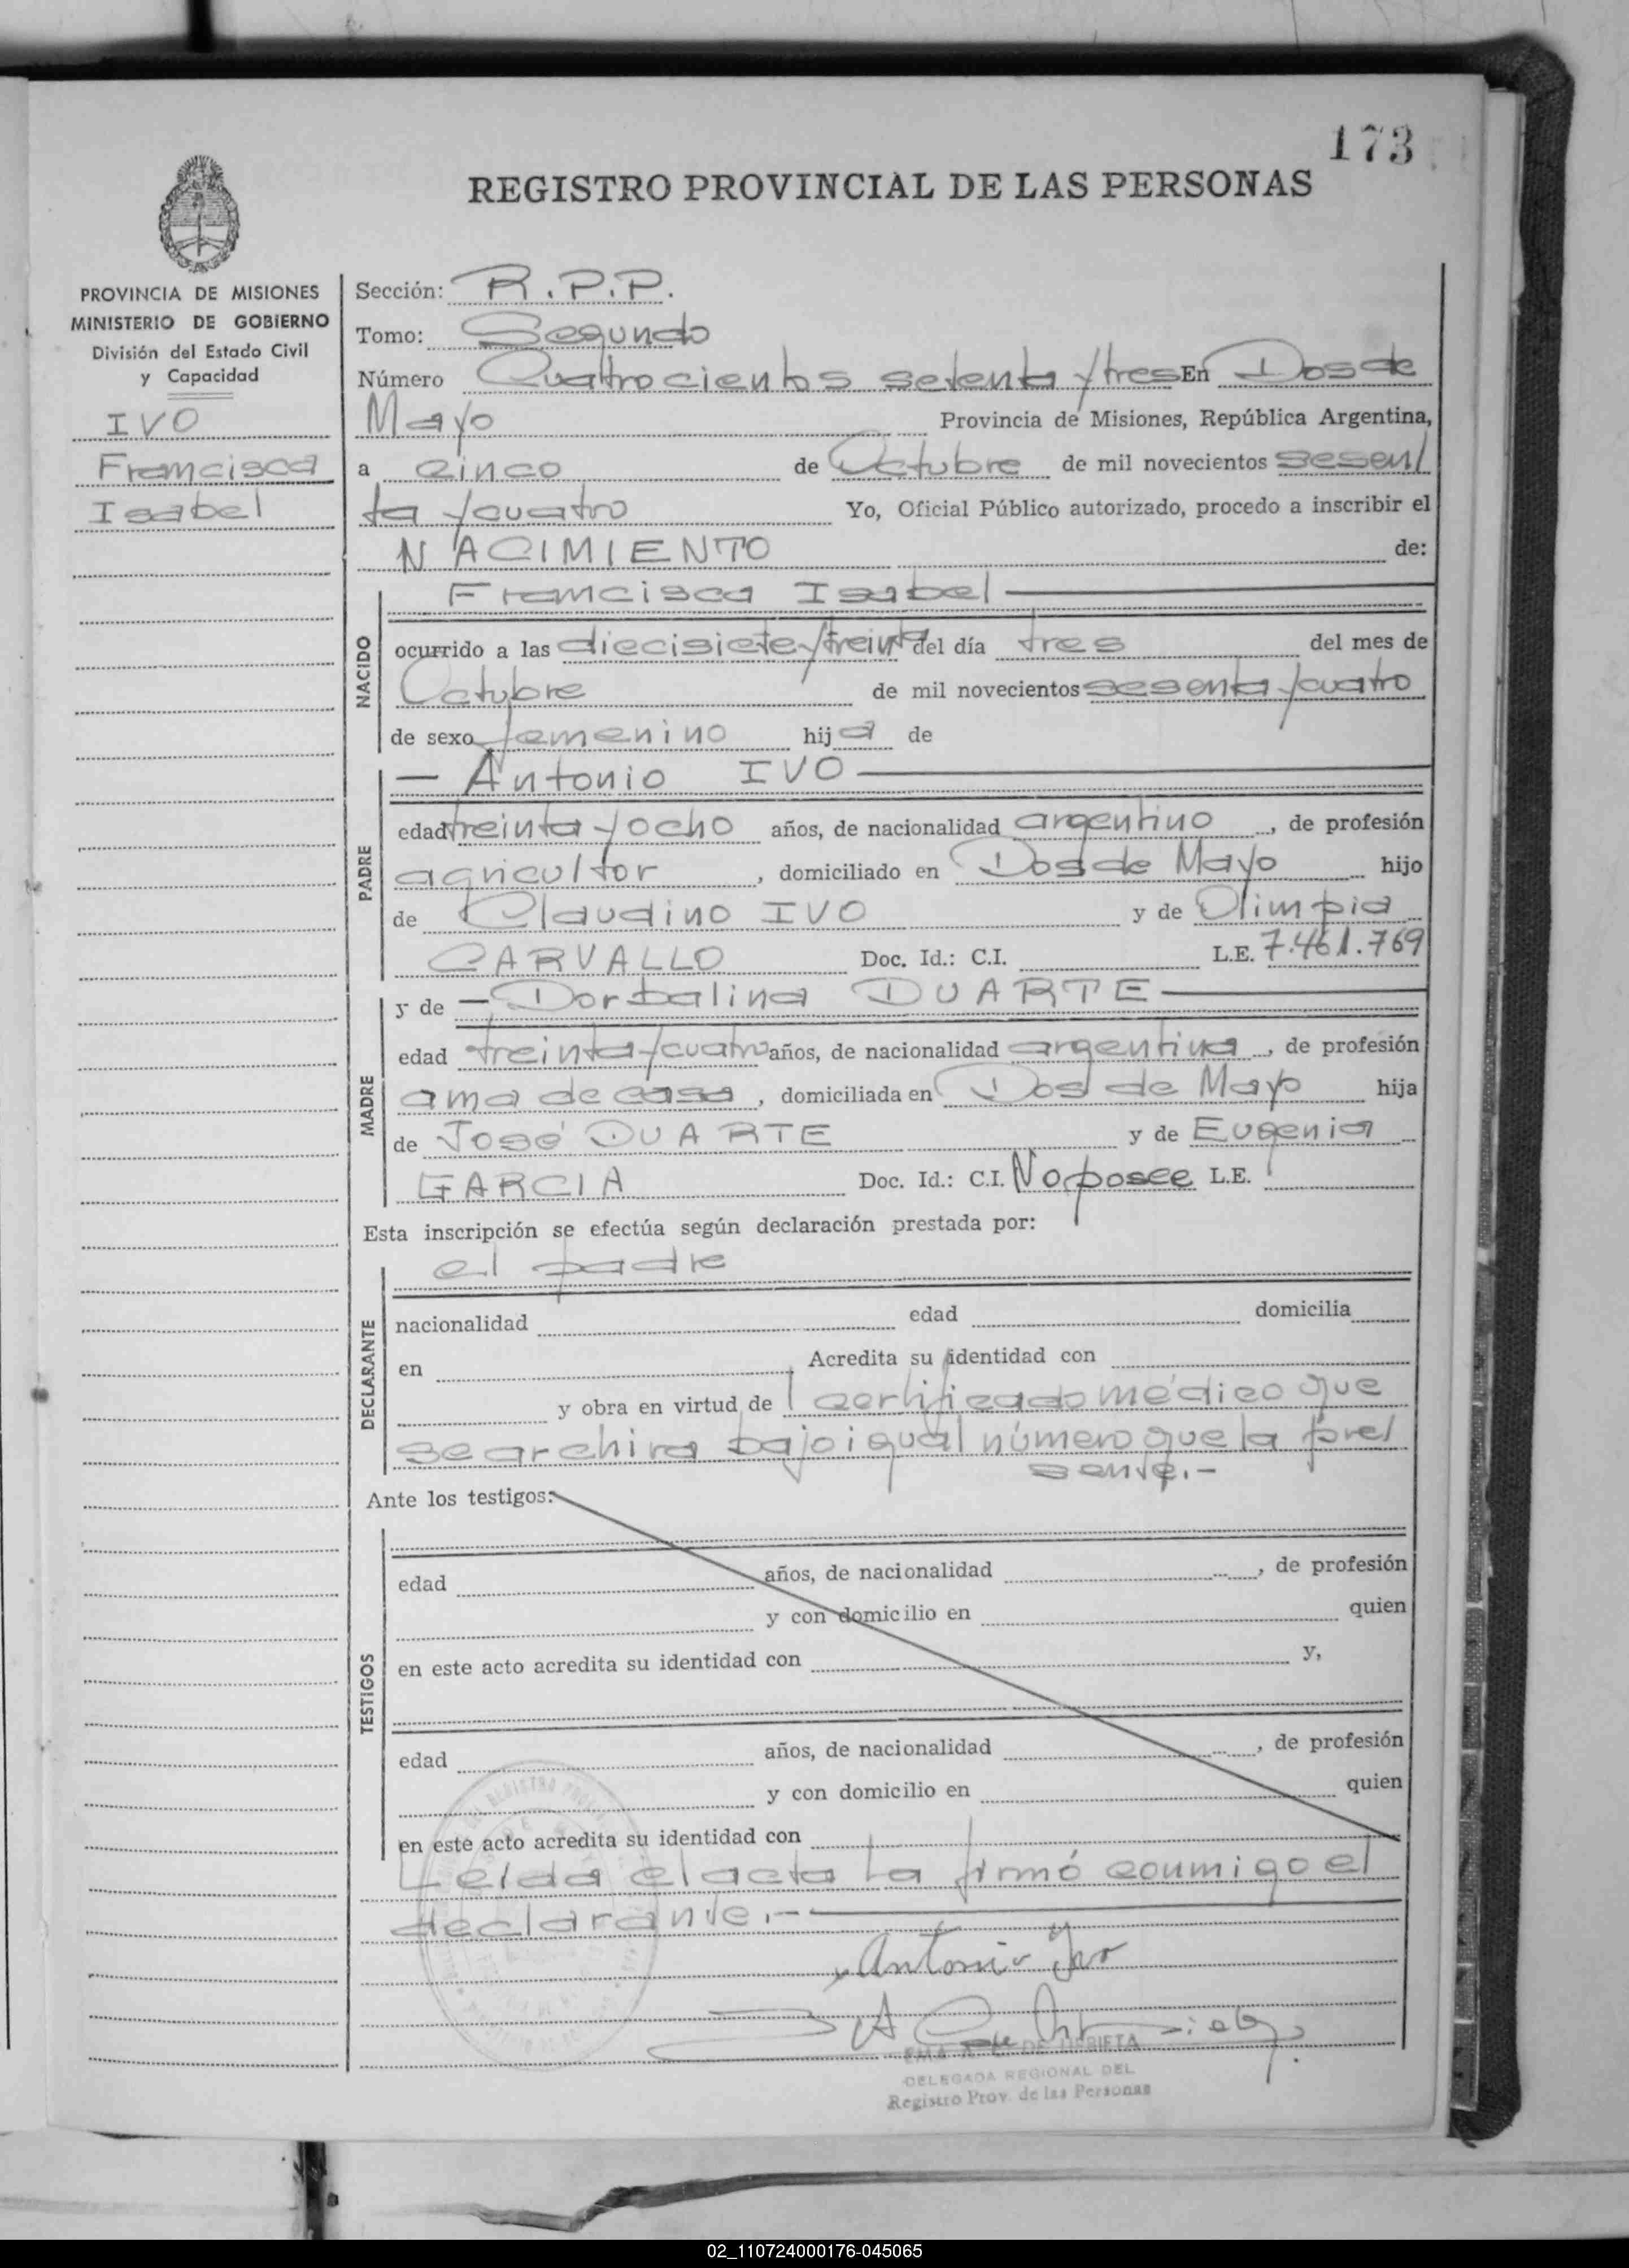 173
REGISTRO PROVINCIAL DE LAS PERSONAS
PROVINCIA DE MISIONES
MINISTERIO DE GOBIERNO
División del Estado Civil
y Capacidad
IVO
Francisca
Isabel
Sección: R.P.P.
Tomo: Segundo
Número Cuatrocientos setenta y tres En Dos de
Mayo Provincia de Misiones, República Argentina,
a cinco de Octubre de mil novecientos sesen/
ta y cuatro Yo, Oficial Público autorizado, procedo a inscribir el
NACIMIENTO de:
NACIDO
Francisca Isabel
ocurrido a las diecisiete y treinta del día tres del mes de
Octubre de mil novecientos sesenta y cuatro
de sexo femenino hija de
PADRE
— Antonio IVO —
edad treinta y ocho años, de nacionalidad argentino, de profesión
agricultor, domiciliado en Dos de Mayo hijo
de Claudino IVO y de Olimpia
CARVALLO Doc. Id.: C.I. L.E. 7.461.769
MADRE
y de — Dorbalina DUARTE —
edad treinta y cuatro años, de nacionalidad argentina, de profesión
ama de casa, domiciliada en Dos de Mayo hija
de José DUARTE y de Eugenia
GARCIA Doc. Id.: C.I. No posee L.E.
Esta inscripción se efectúa según declaración prestada por:
DECLARANTE
el padre
nacionalidad edad domicilia
en Acredita su identidad con
y obra en virtud de l certificado médico que
se archiva bajo igual número que la pre/
sente.-
Ante los testigos:
TESTIGOS
edad años, de nacionalidad , de profesión
y con domicilio en quien
en este acto acredita su identidad con y,
edad años, de nacionalidad , de profesión
y con domicilio en quien
en este acto acredita su identidad con
Leída el acta la firmó conmigo el
declarante.-
Antonio Ivo
DE URBIETA
DELEGADA REGIONAL DEL
Registro Prov. de las Personas
02_110724000176-045065